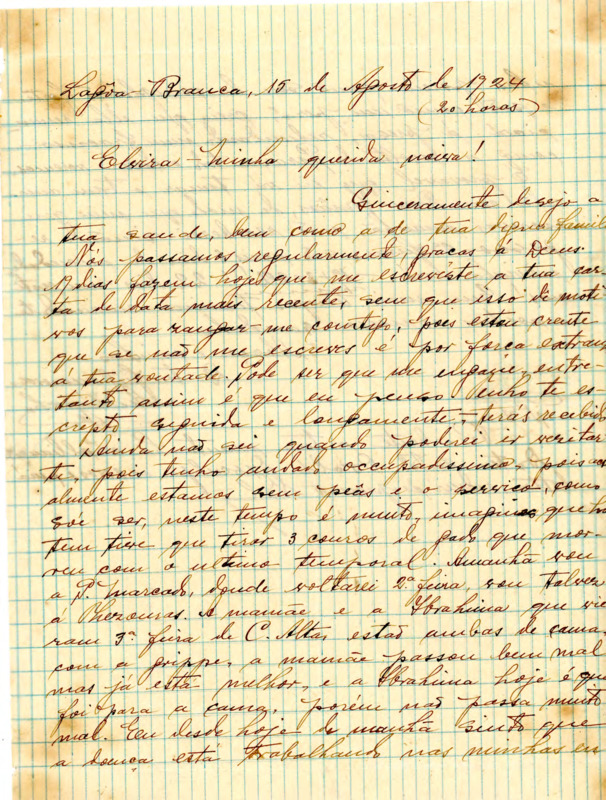 Lagôa-Branca, 15 de Agosto de 1924
(20 horas)
Elvira - Minha querida noiva!
Sinceramente desejo a
tua saude, bem como a de tua digna famil
Nós passamos regularmente, graças á Deus.
dias fazem hoje que me escreviste a tua car
ta de data mais recente, sem que isso dê moti
vos para zangar-me comtigo, pois estou crente
que se não me escreves é por força extran
á tua vontade. Pode ser que me engane, entre-
tanto assim é que eu penso. Tenho te es-
cripto seguida e longamente, - terás recebido
Ainda não sei quando poderei ir vezitar-
te, pois tenho andado occupadissimo, pois
almente estamos sem peãs e, o serviço, como
sóe ser, neste tempo é muito, imagines que ho
tem tive que tirar 3 couros de gado que mor-
reu com o ultimo temporal. Amanhã vou
a P. Marcado, donde voltarei 2ª feira, vou talvez
á Thezouras. A mamãe e a Ibrahima que vie
ram 3ª feira de C. Alta, estão ambas de cama,
com a grippe, a mamãe passou bem mal
mas já está melhor, e a Ibrahima hoje é que
foi para a cama, porém não passa muito
mal. Eu desde hoje de manhã sinto que
a doença está trabalhando nas minhas en